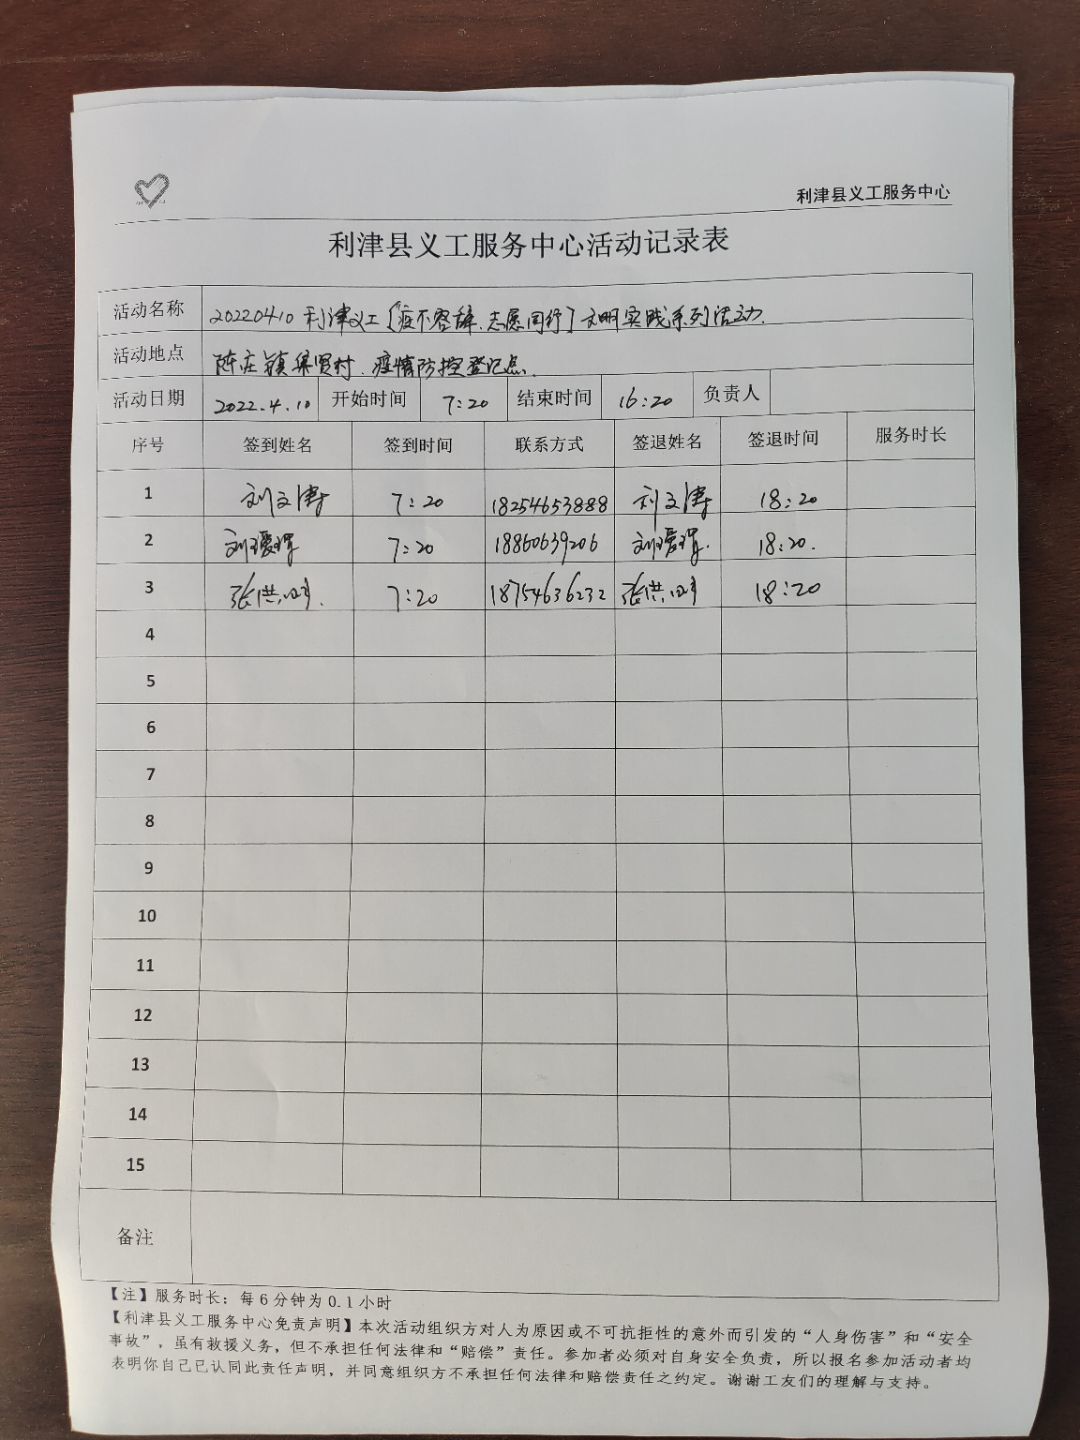 利津县义工服务中心
利津县义工服务中心活动记录表
活动名称 20220410 利津义工〔疫不容辞.志愿同行〕文明实践系列活动.
活动地点 陈庄镇集贤村.疫情防控登记点.
活动日期 2022.4.10 开始时间 7:20 结束时间 16:20 负责人
序号 签到姓名 签到时间 联系方式 签退姓名 签退时间 服务时长
1 刘文涛 7:20 18254653888 刘文涛 18:20
2 刘瑷珲 7:20 18860639206 刘瑷珲. 18:20.
3 张洪 7:20 18754636232 张洪 18:20
4
5
6
7
8
9
10
11
12
13
14
15
备注
【注】服务时长：每6分钟为0.1小时
【利津县义工服务中心免责声明】本次活动组织方对人为原因或不可抗拒性的意外而引发的“人身伤害”和“安全
事故”，虽有救援义务，但不承担任何法律和“赔偿”责任。参加者必须对自身安全负责，所以报名参加活动者均
表明你自己已认同此责任声明，并同意组织方不承担任何法律和赔偿责任之约定。谢谢工友们的理解与支持。